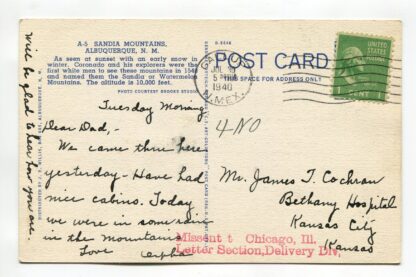 A-5 SANDIA MOUNTAINS,
ALBUQUERQUE, N. M.
As seen at sunset with an early snow in
winter. Coronado and his explorers were the
first white men to see these mountains in 1540
and named them the Sandia or Watermelon
Mountains. The altitude is 10,000 feet.
PHOTO COURTESY BROOKS STUDIO
Tuesday Morning
Dear Dad,-
We came thru here
yesterday - Have had
nice cabins. Today
we were in some rain
in the mountains
Love
Will be glad to hear how you are.
POST CARD
THIS SPACE FOR ADDRESS ONLY
1940
N. MEX.
UNITED STATES
POSTAGE
1 CENT
4-NO
Mr. James T Cochran
Bethany Hospital
Kansas City
Kansas
Missent t Chicago, Ill.
Letter Section, Delivery Div.